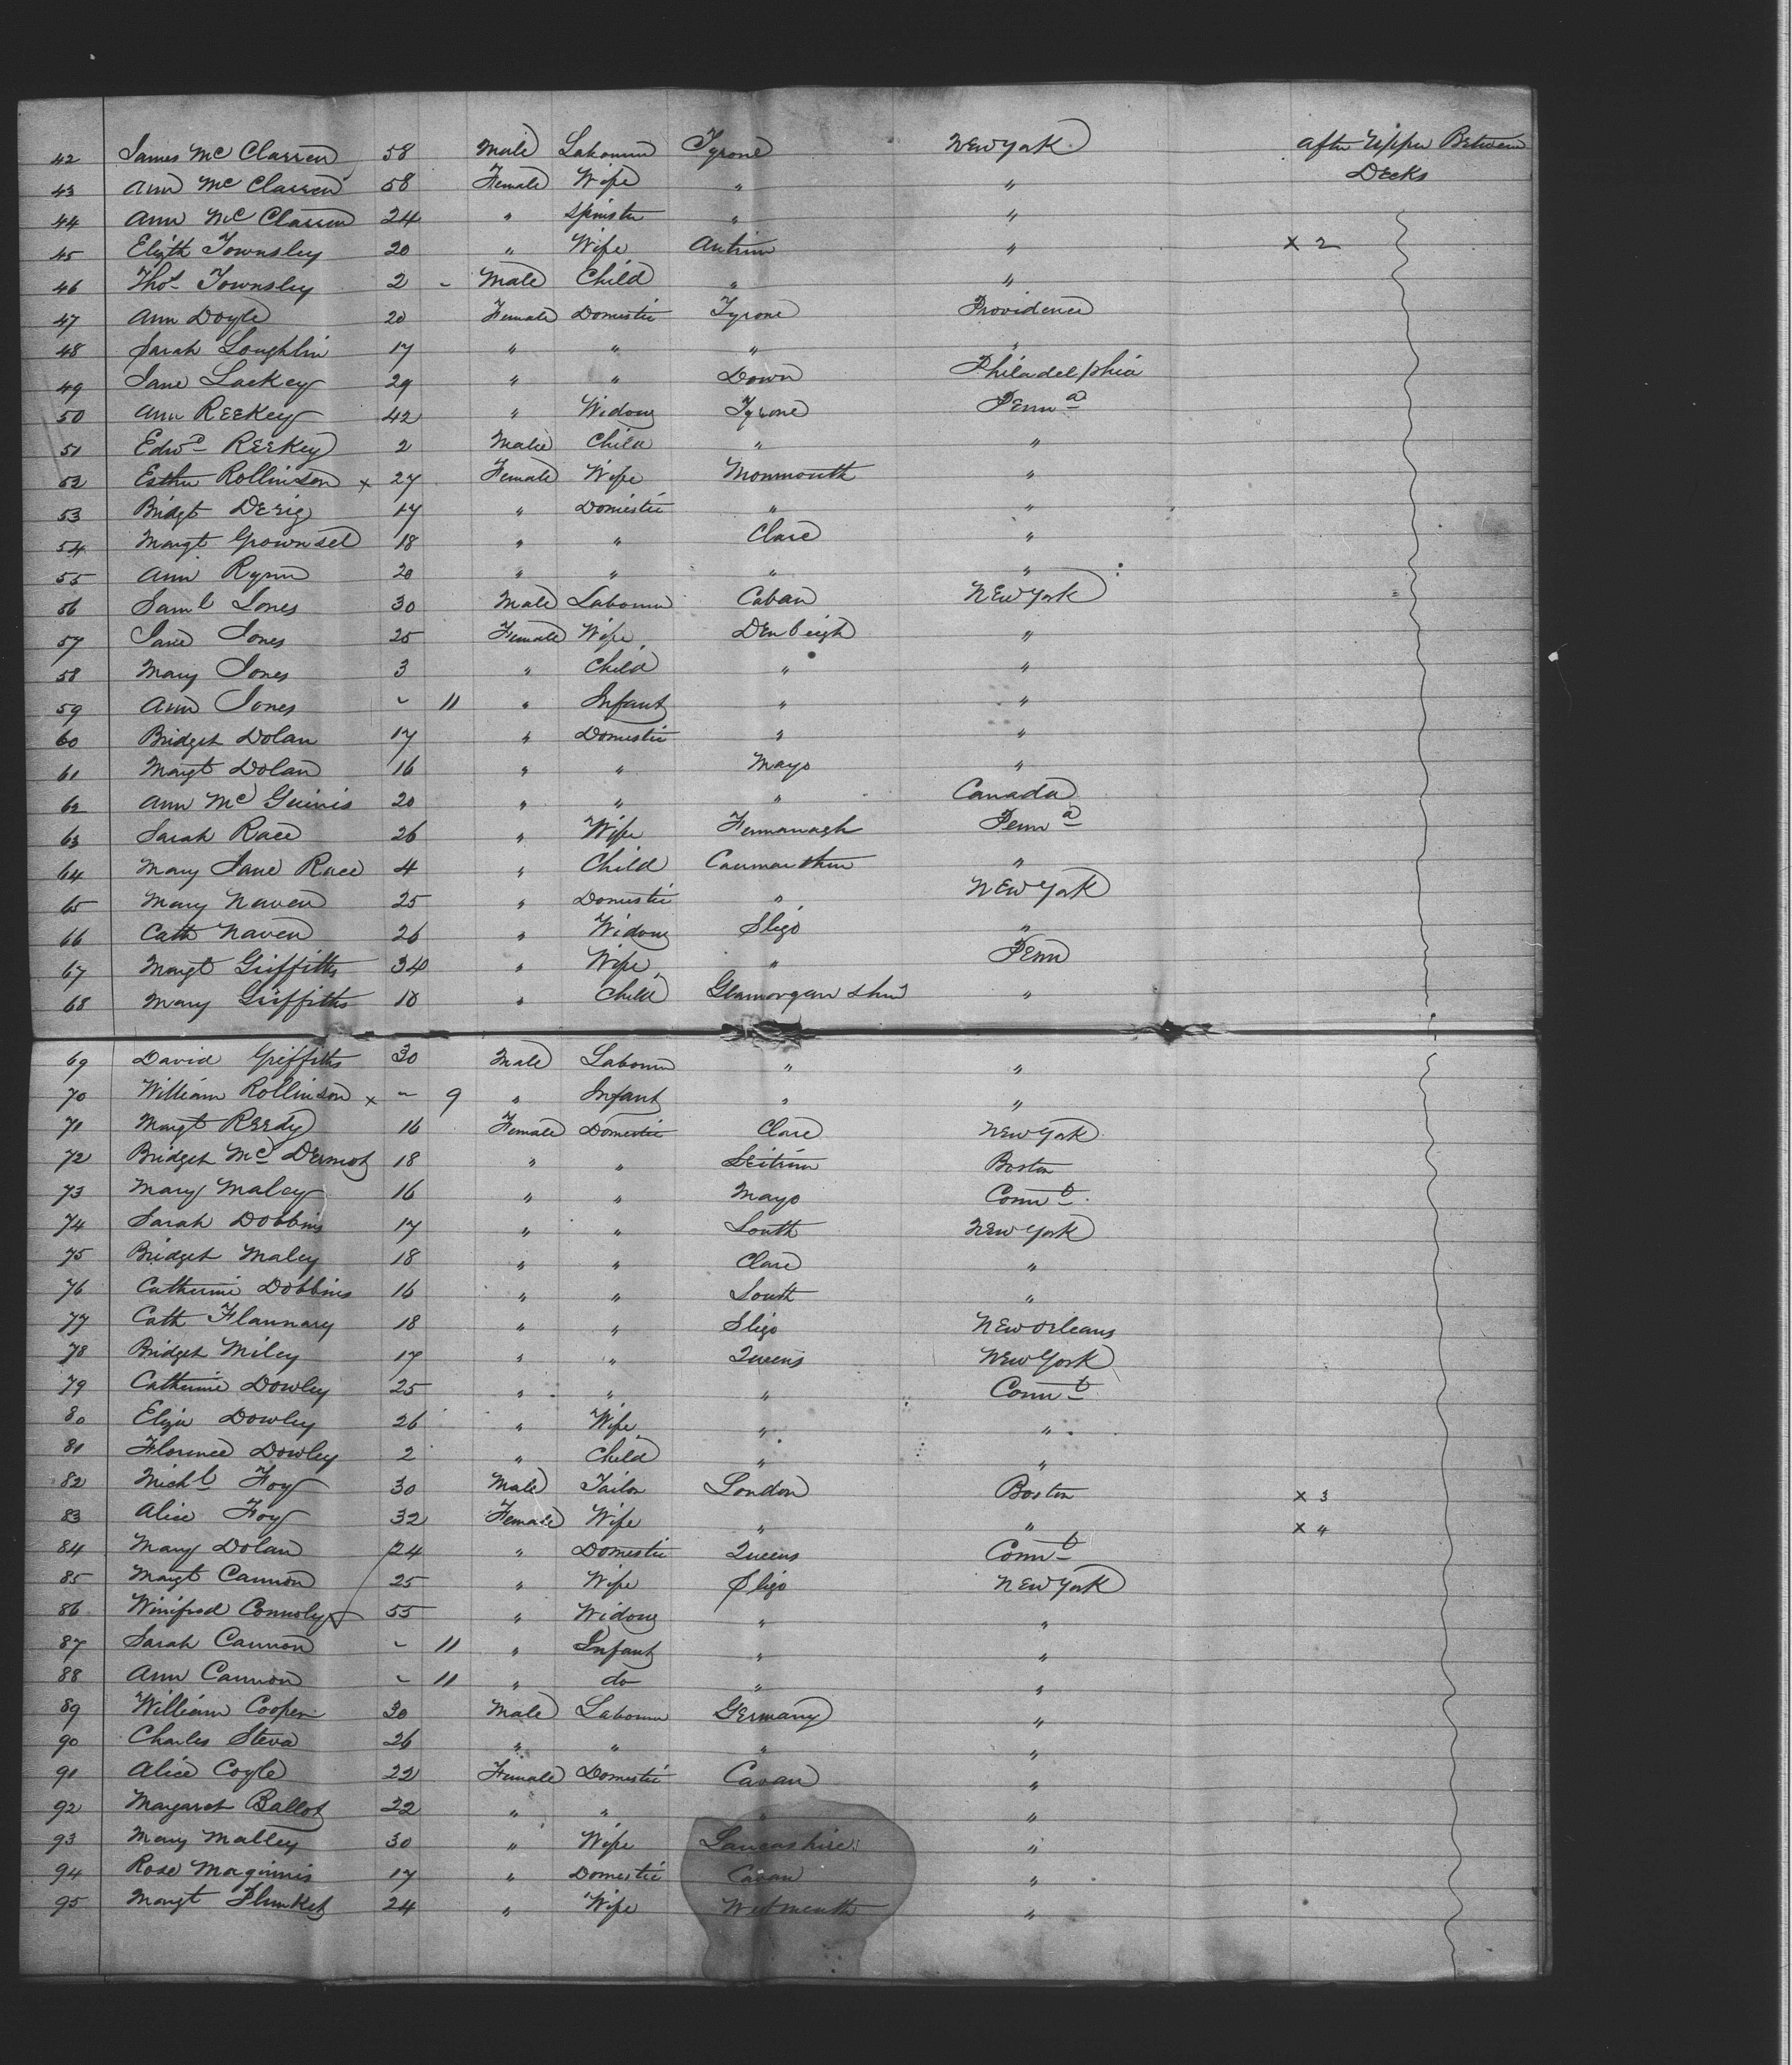 42 James Mc Clarren 58 Male Labourer Tyrone New York After Upper Between
Decks
43 Ann Mc Clarren 58 Female Wife " "
44 Ann Mc Clarren 24 " Spinster " "
45 Elizth Townsley 20 " Wife Antrim " x 2
46 Thos Townsley 2 - Male Child " "
47 Ann Doyle 20 Female Domestic Tyrone Providence
48 Sarah Loughlin 17 " " " "
49 Jane Lackey 29 " " Down Philadelphia
50 Ann Reekey 42 " Widow Tyrone Penna
51 Edwd Reekey 2 Male Child " "
52 Esther Rollinson x 27 Female Wife Monmouth "
53 Bridgt Derig 17 " Domestic " "
54 Margt Grownsel 18 " " Clare "
55 Ann Rynn 20 " " " "
56 Saml Jones 30 Male Labourer Caban New York
57 Jane Jones 25 Female Wife Denbeigh "
58 Mary Jones 3 " Child " "
59 Ann Jones - 11 " Infant " "
60 Bridget Dolan 17 " Domestic " "
61 Margt Dolan 16 " " Mayo "
62 Ann Mc Guinis 20 " " " Canada
63 Sarah Race 26 " Wife Fermanagh Penna
64 Mary Jane Race 4 " Child Carmarthen "
65 Mary Naven 25 " Domestic " New York
66 Cath Naven 26 " Widow Sligo "
67 Margt Griffiths 34 " Wife " Penn
68 Mary Griffiths 10 " Child Glamorganshire "
69 David Griffiths 30 Male Labourer " "
70 William Rollinson x - 9 " Infant " "
71 Margt Reedy 16 Female Domestic Clare New York
72 Bridget Mc Dermot 18 " " Leitrim Boston
73 Mary Maley 16 " " Mayo Connt
74 Sarah Dobbins 17 " " Louth New York
75 Bridget Maley 18 " " Clare "
76 Catherine Dobbins 16 " " Louth "
77 Cath Flannary 18 " " Sligo New Orleans
78 Bridget Miley 17 " " Queens New York
79 Catherine Dowley 25 " " " Connt
80 Eliza Dowley 26 " Wife " "
81 Florence Dowley 2 " Child " "
82 Michl Foy 30 Male Tailor London Boston x 3
83 Alice Foy 32 Female Wife " " x 4
84 Mary Dolan 24 " Domestic Queens Connt
85 Margt Cannon 25 " Wife Sligo New York
86 Winifred Connoly x 55 " Widow " "
87 Sarah Cannon - 11 " Infant " "
88 Ann Cannon - 11 " do " "
89 William Cooper 30 Male Labourer Germany "
90 Charles Steva 26 " " " "
91 Alice Coyle 22 Female Domestic Cavan "
92 Margaret Ballot 22 " " " "
93 Mary Malley 30 " Wife Lancashire "
94 Rose Maginnis 17 " Domestic Cavan "
95 Margt Plunket 24 " Wife Westmeath "